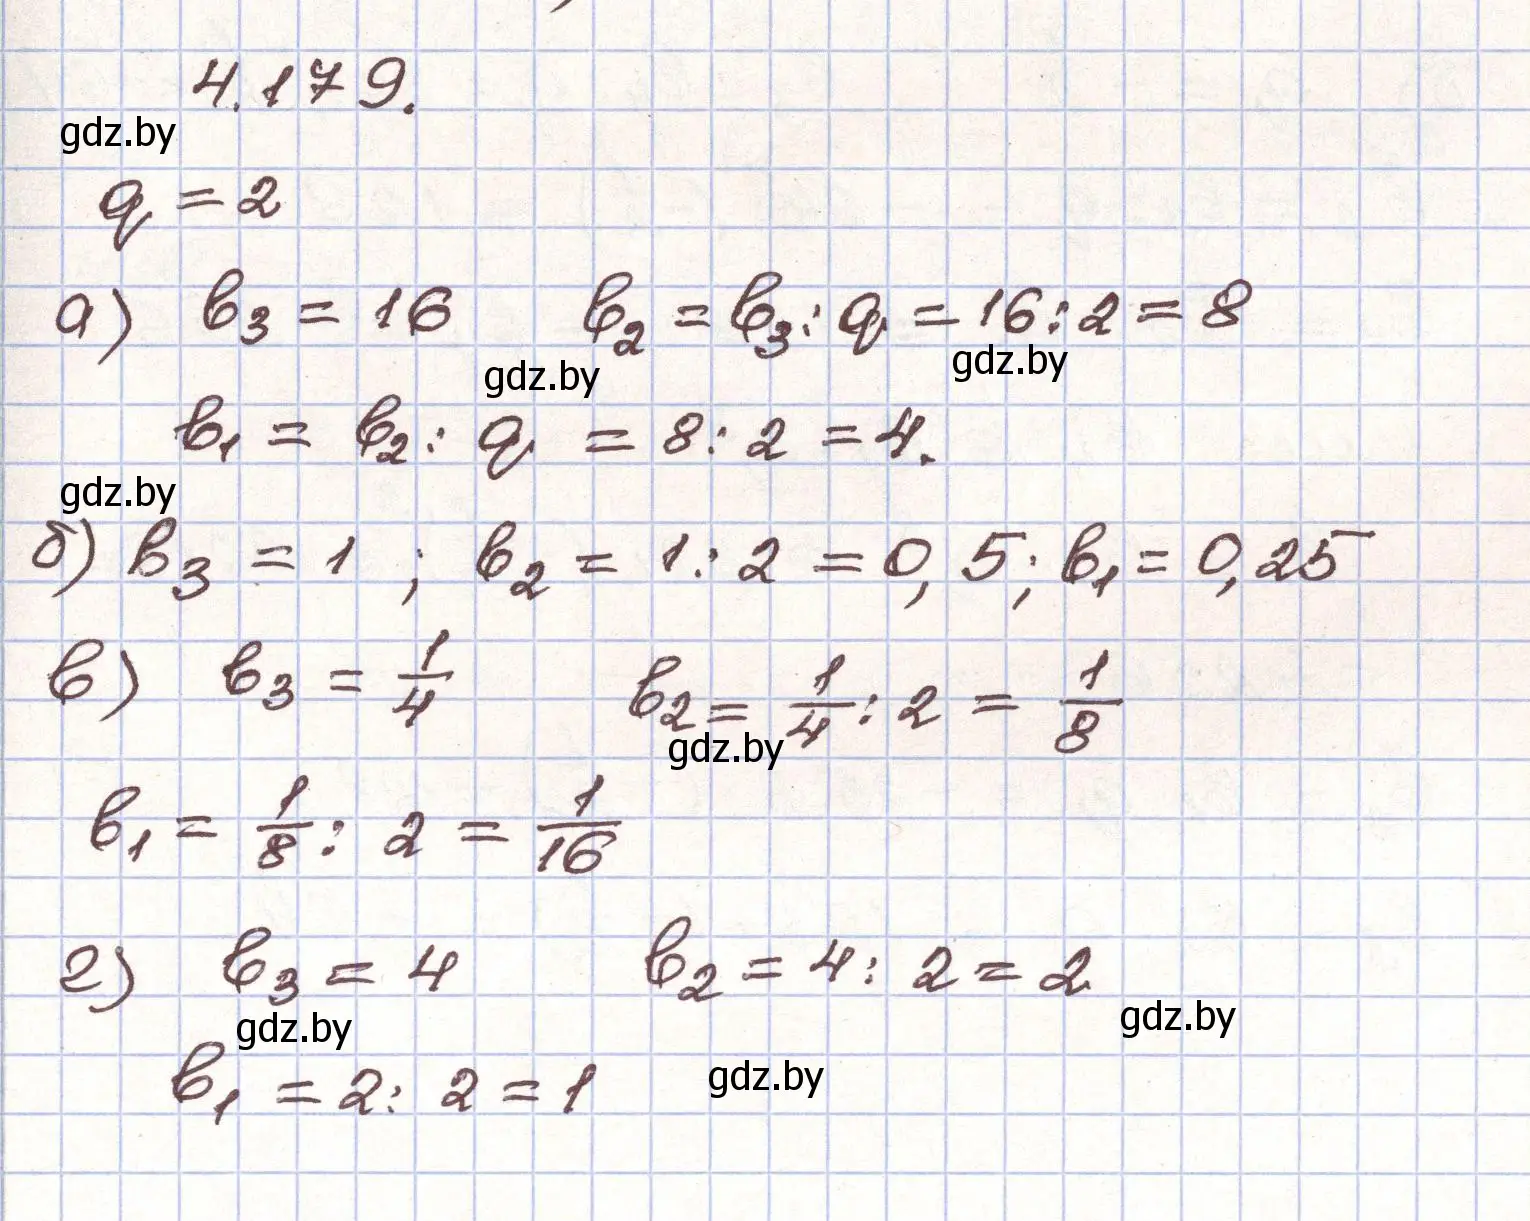 4.179.
gdz.by
q = 2
а) b₃ = 16 b₂ = b₃ : q = 16 : 2 = 8
gdz.by gdz.by
b₁ = b₂ : q = 8 : 2 = 4.
gdz.by
б) b₃ = 1 ; b₂ = 1 : 2 = 0,5; b₁ = 0,25
в) b₃ = 1/4 b₂ = 1/4 : 2 = 1/8
gdz.by
b₁ = 1/8 : 2 = 1/16
г) b₃ = 4 b₂ = 4 : 2 = 2
gdz.by gdz.by
b₁ = 2 : 2 = 1 gdz.by